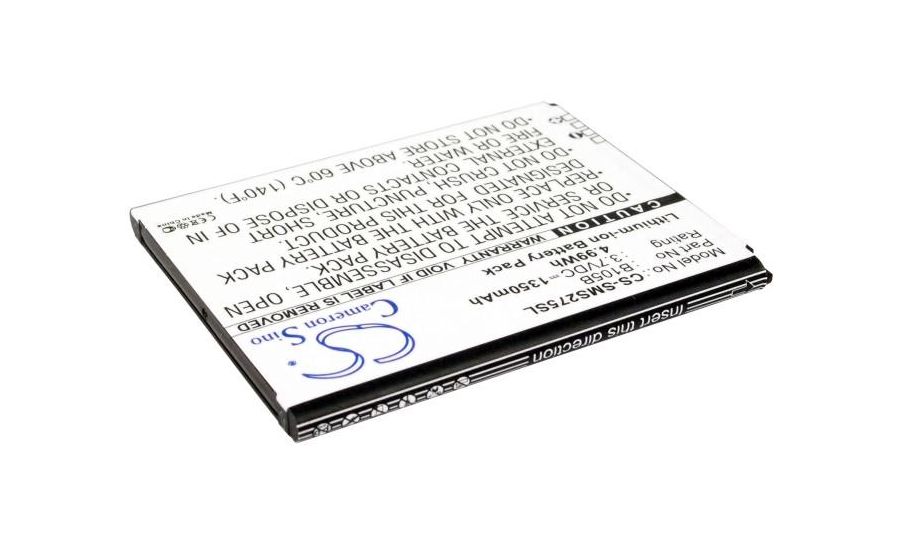 CS
Cameron Sino
Model No: CS-SMS275SL
Part No: B105B
Rating: 3.7VDC 1350mAh
4.99Wh
Lithium-ion Battery Pack
CAUTION WARRANTY VOID IF LABEL IS REMOVED
•DO NOT ATTEMPT TO OPEN
OR SERVICE BATTERY PACK.
•REPLACE ONLY WITH THE BATTERY
DESIGNATED FOR THIS PRODUCT.
•DO NOT CRUSH, PUNCTURE, SHORT
EXTERNAL CONTACTS OR DISPOSE OF IN
FIRE OR WATER.
•DO NOT STORE ABOVE 60°C (140°F).
CE
Made in China
Insert this direction